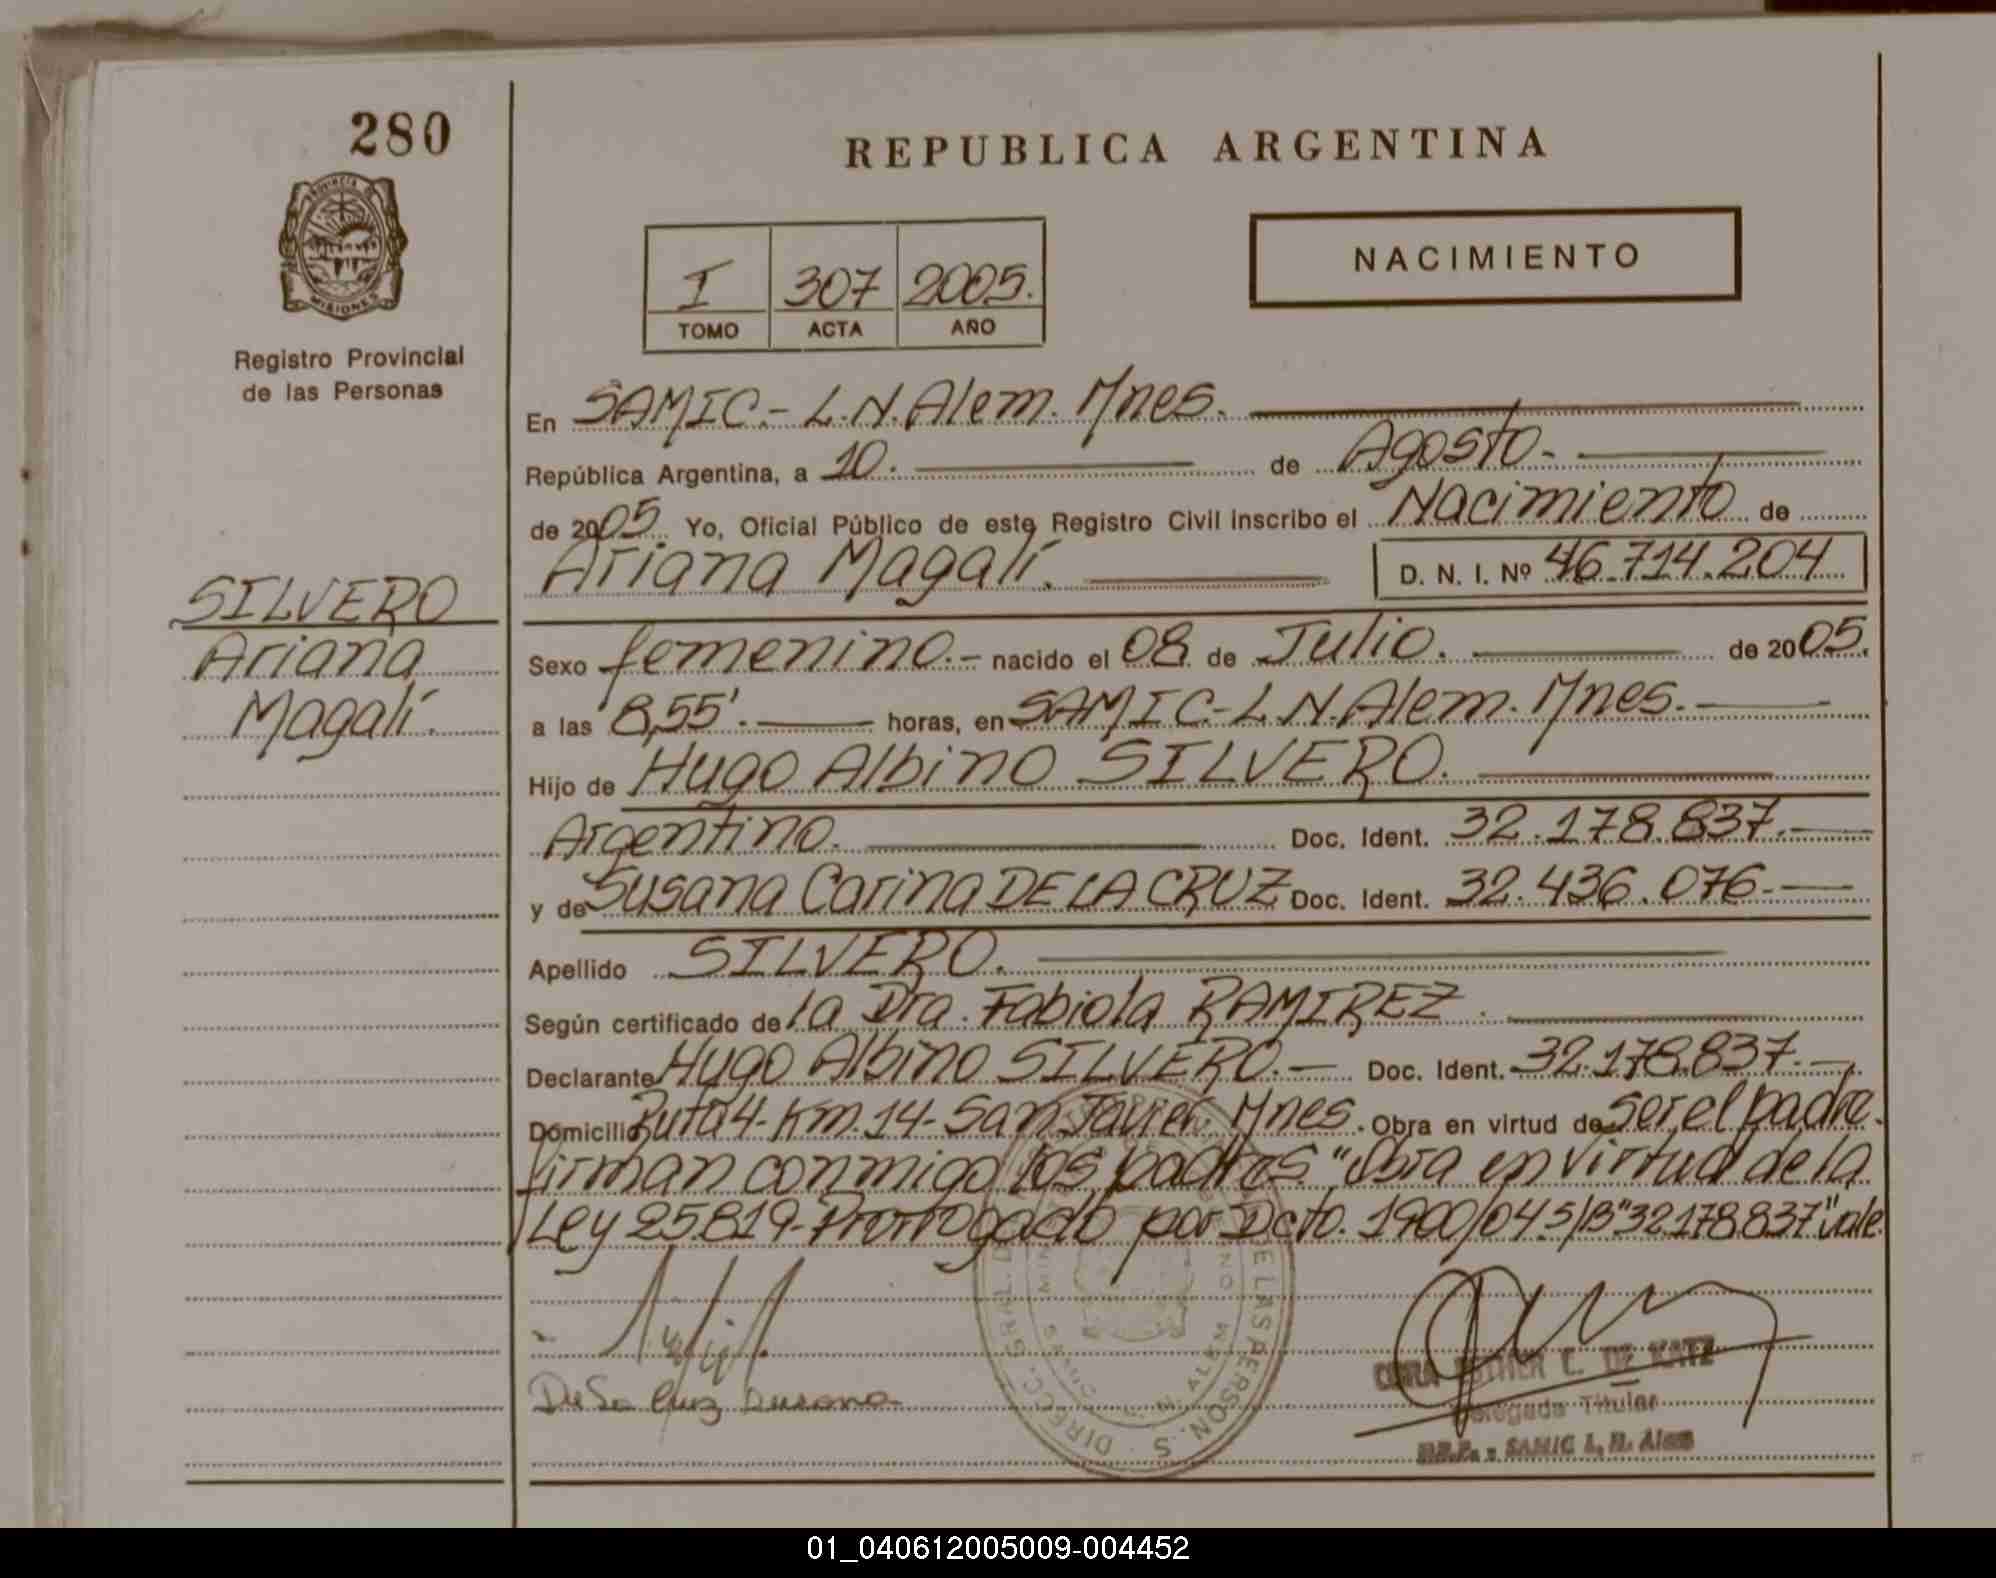 280
REPUBLICA ARGENTINA
PROVINCIA DE
MISIONES
Registro Provincial
de las Personas
I 307 2005.
TOMO ACTA AÑO
NACIMIENTO
En SAMIC.- L.N.Alem. Mnes.
República Argentina, a 10. de Agosto.-
de 2005 Yo, Oficial Público de este Registro Civil inscribo el Nacimiento de
Ariana Magalí. D. N. I. Nº 46.714.204
SILVERO
Ariana
Magalí.
Sexo femenino.- nacido el 08 de Julio. de 2005.
a las 8,55'. horas, en SAMIC.-L.N.Alem. Mnes.-
Hijo de Hugo Albino SILVERO.
Argentino. Doc. Ident. 32.178.837.-
y de Susana Carina DE LA CRUZ Doc. Ident. 32.436.076.-
Apellido SILVERO.
Según certificado de la Dra. Fabiola RAMIREZ.
Declarante Hugo Albino SILVERO.- Doc. Ident. 32.178.837.-
Domicilio Ruta 4- Km.14- San Javier Mnes. Obra en virtud de ser el padre.
firman conmigo los padres "Obra en virtud de la
Ley 25.819- Prorrogado por Dcto. 1900/04. S/B "32.178.837" vale.
De La Cruz Susana
ESTHER C. DE KATZ
Delegada Titular
R.P. - SAMIC L. N. Alem
01_040612005009-004452